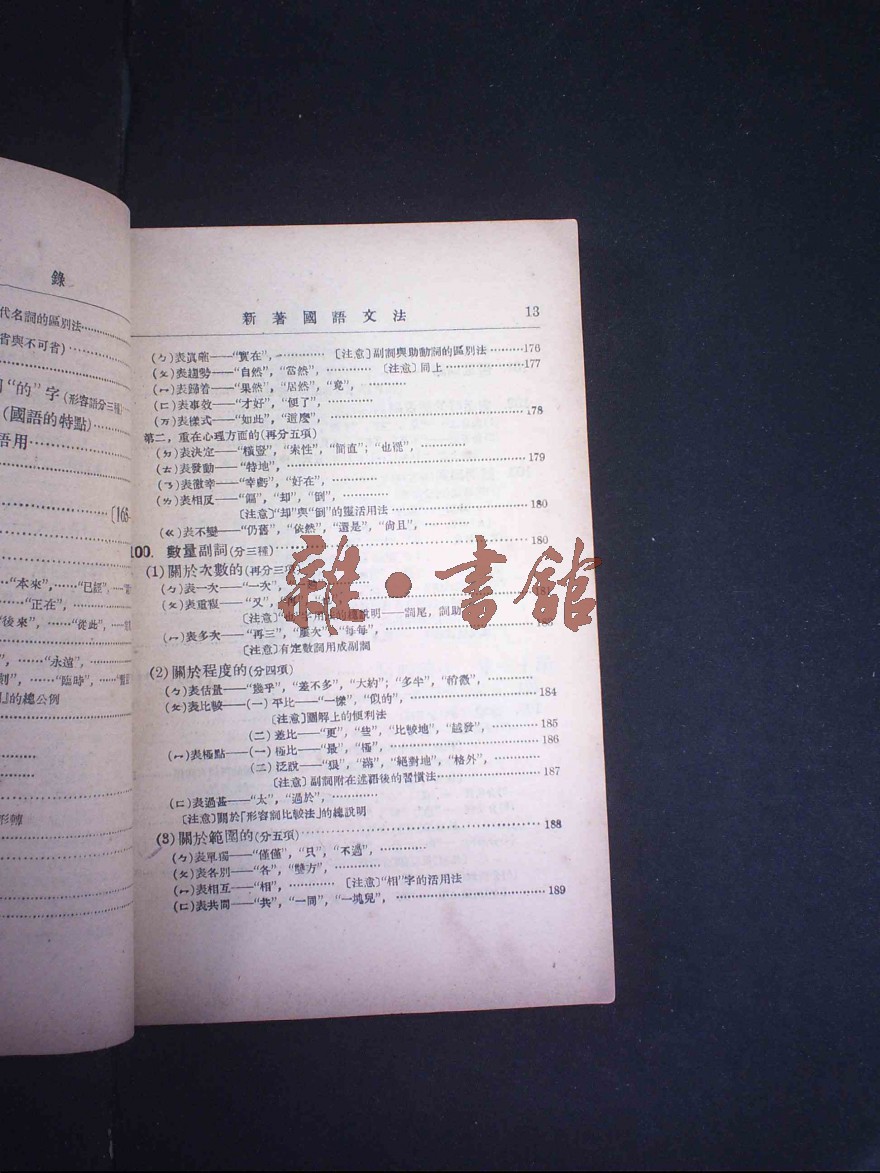 錄
代名詞的區別法
省與不可省)
“的”字(形容語分三種)
(國語的特點)
語用
[165
“本來”,……“已經”,
“正在”,
“後來”,……“從此”,
”,……“永遠”,
”,……“臨時”,
的總公例
形轉
新著國語文法 13
(ㄅ)表眞確——“實在”,………… [注意]副詞與助動詞的區別法………176
(ㄆ)表趨勢——“自然”,“當然”,………… [注意]同上………177
(ㄇ)表歸着——“果然”,“居然”,“竟”,…………
(ㄈ)表事效——“才好”,“便了”,…………
(ㄪ)表樣式——“如此”,“這麼”,…………178
第二,重在心理方面的(再分五項)
(ㄉ)表決定——“橫豎”,“索性”,“簡直”;“也罷”,…………
(ㄊ)表發動——“特地”,…………179
(ㄋ)表徼幸——“幸虧”,“好在”,…………
(ㄌ)表相反——“偏”,“却”,“倒”,…………
[注意]“却”與“倒”的靈活用法…………180
(ㄍ)表不變——“仍舊”,“依然”,“還是”,“尙且”,…………
100. 數量副詞(分三種)…………180
(1)關於次數的(再分三項)
(ㄅ)表一次——“一次”,
(ㄆ)表重複——“又”,
[注意] 說明——詞尾,詞助
(ㄇ)表多次——“再三”,“屢次”,“每每”,
[注意]有定數詞用成副詞
(2)關於程度的(分四項)
(ㄅ)表估量——“幾乎”,“差不多”,“大約”;“多半”,“稍微”,…………
(ㄆ)表比較——(一)平比——“一樣”,“似的”,…………184
[注意]圖解上的便利法
(二)差比——“更”,“些”,“比較地”,“越發”,…………185
(ㄇ)表極點——(一)極比——“最”,“極”,…………186
(二)泛說——“狠”,“滿”,“絕對地”,“格外”,…………
[注意]副詞附在述語後的習慣法…………187
(ㄈ)表過甚——“太”,“過於”,…………
[注意]關於『形容詞比較法』的總說明
(3)關於範圍的(分五項)…………188
(ㄅ)表單獨——“僅僅”,“只”,“不過”,…………
(ㄆ)表各別——“各”,“雙方”,…………
(ㄇ)表相互——“相”,………… [注意]“相”字的活用法
(ㄈ)表共同——“共”,“一同”,“一塊兒”,…………189
雜·書館